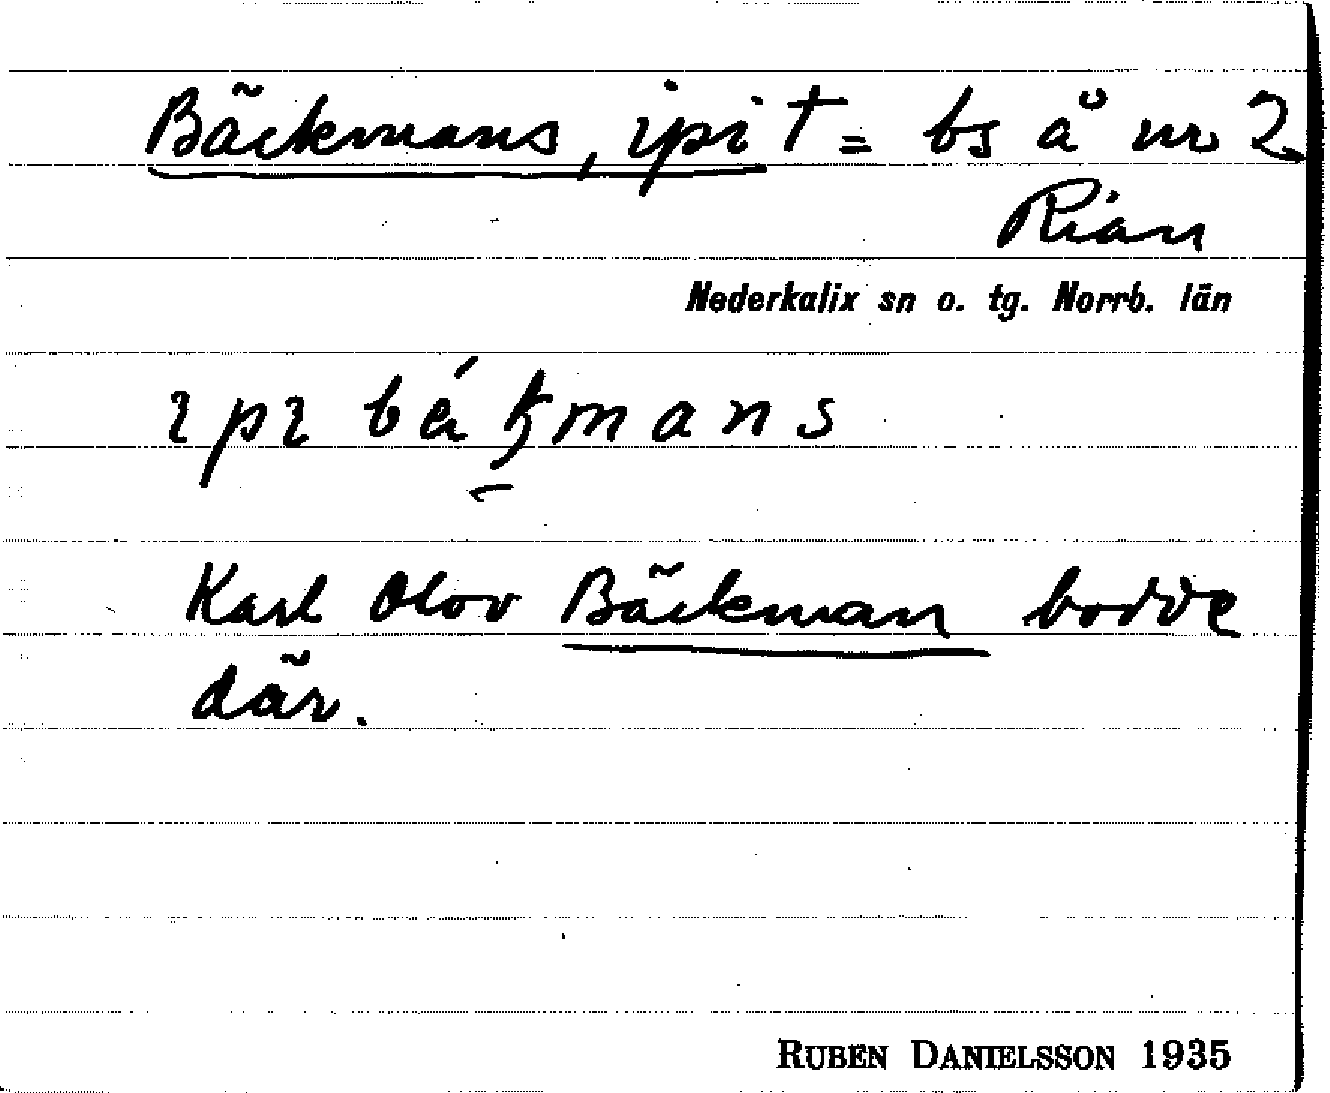 Bäckmans, ipi † = bs å nr 2
Riän
Nederkalix sn o. tg. Norrb. län
ıpı bákmans
Karl Olov Bäckman bodde
där.
RUBEN DANIELSSON 1935